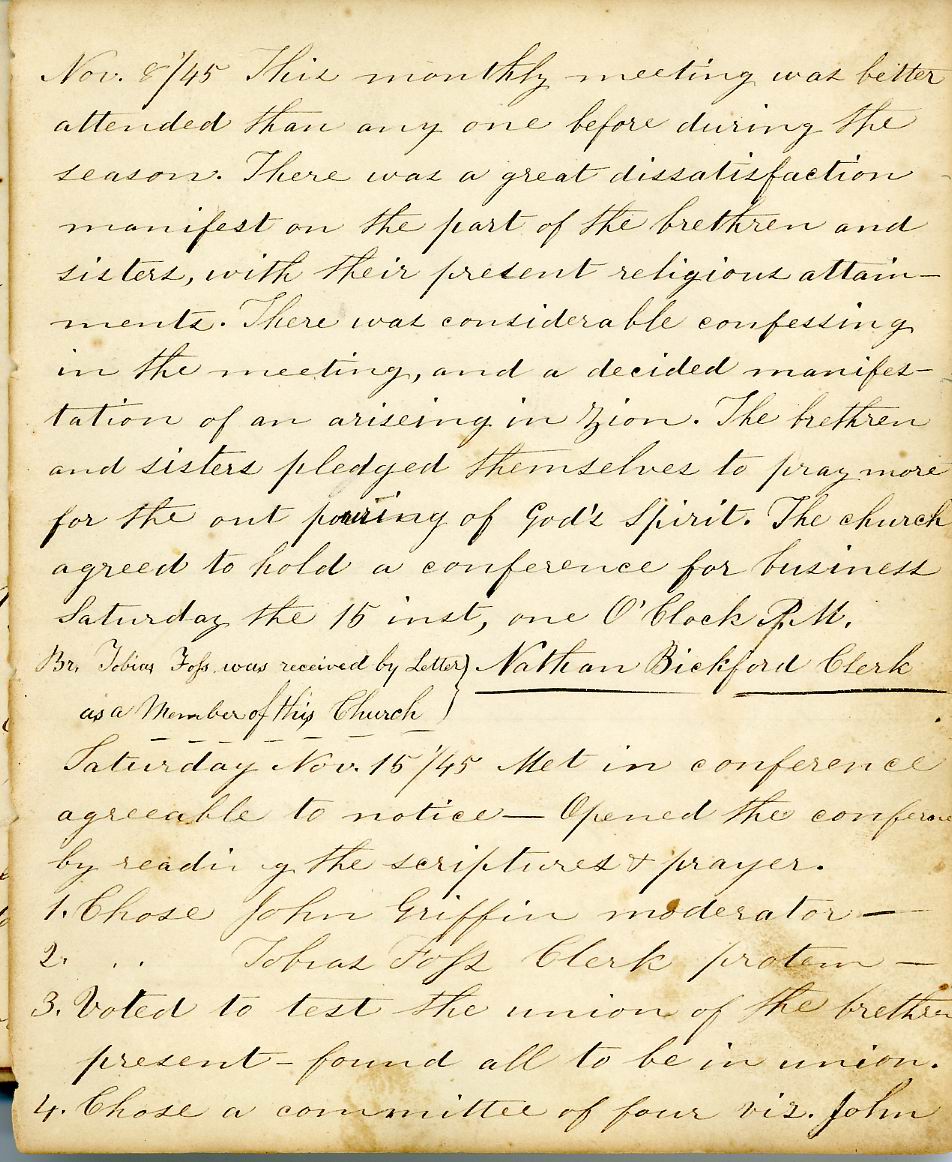 Nov. 8'/45 This monthly meeting was better
attended than any one before during the
season. There was a great dissatisfaction
manifest on the part of the brethren and
sisters, with their present religious attain-
ments. There was considerable confessing
in the meeting, and a decided manifes-
tation of an ariseing in Zion. The brethren
and sisters pledged themselves to pray more
for the out pouring of God's Spirit. The church
agreed to hold a conference for business
Saturday the 15 inst, one O'Clock P.M.
Br. Tobias Foss was received by Letter) Nathan Bickford Clerk
as a Member of this Church )
Saturday Nov. 15'/45 Met in conference
agreeable to notice — Opened the conferenc
by reading the scriptures & prayer.
1. Chose John Griffin moderator —
2. . . Tobias Foss Clerk protem —
3. Voted to test the union of the brethren
present - found all to be in union.
4. Chose a committee of four viz. John